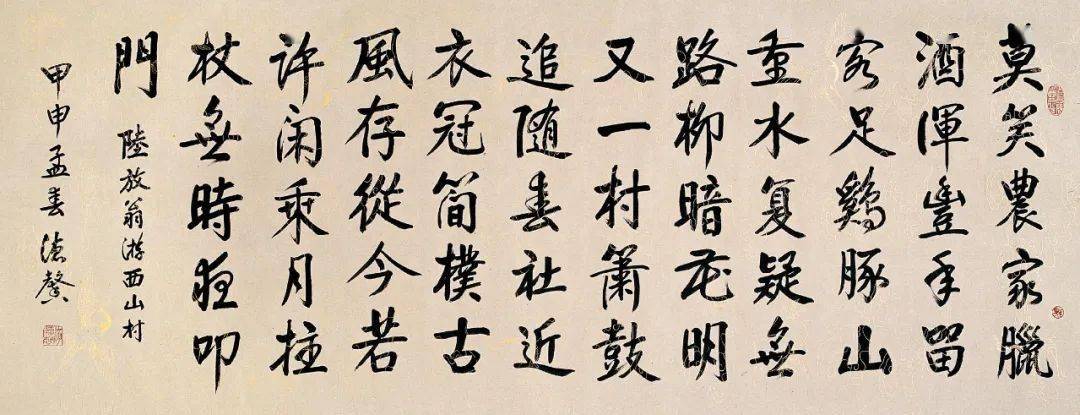 莫笑農家臘
酒渾豐年留
客足鷄豚山
重水复疑無
路柳暗花明
又一村簫鼓
追随春社近
衣冠簡樸古
風存從今若
许闲乘月拄
杖無時夜叩
門
陸放翁游西山村
甲申孟春德馨